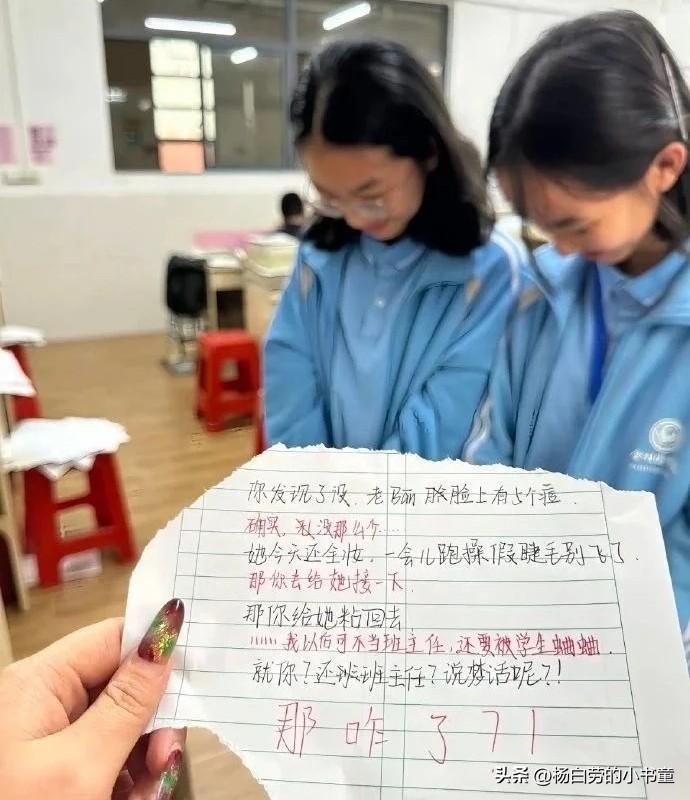 你发现了没，老师脸脸上有5个痘.
确实，我没那么个....
她今天还全妆，一会儿跑操假睫毛别飞了.
那你去给她接一下.
那你给她粘回去
......我以后可不当班主任，还要被学生蛐蛐.
就你？还班班主任？说梦话呢？!
那咋了71
头条 @杨白劳的小书童